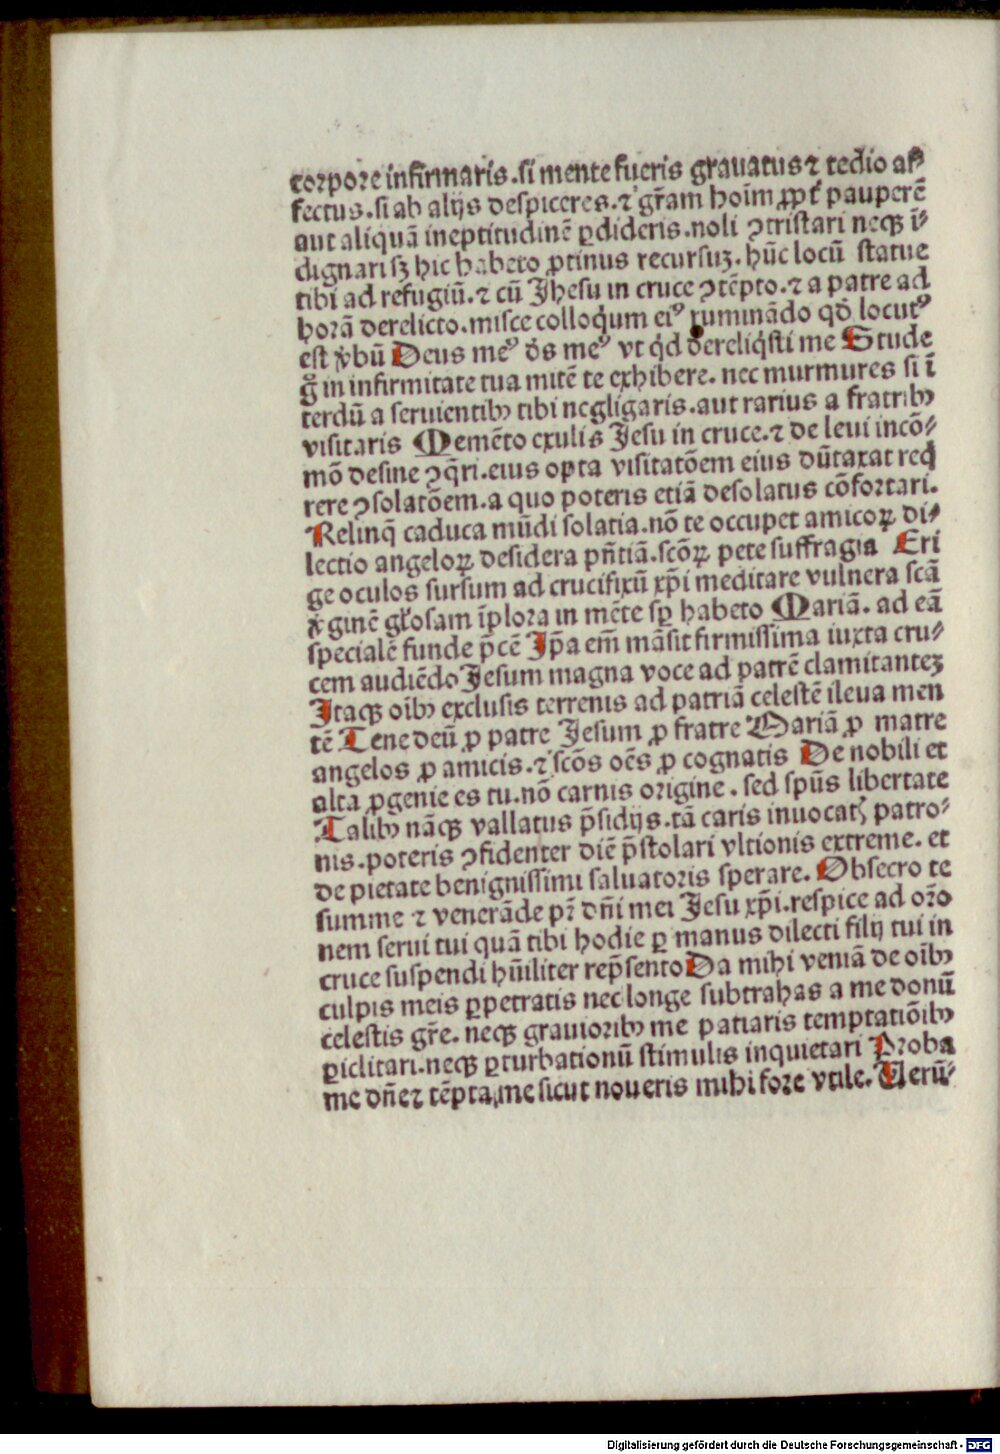 corpore infirmaris. si mente fueris grauatus ⁊ tedio af⸗
fectus. si ab alijs despiceres. ⁊ gr̄am hoīm ꝓpt̄ pauperē
aut aliquā ineptitudinē ꝑdideris. noli ꝯtristari neqꝫ ī⸗
dignari sꝫ hic habeto ꝓtinus recursuꝫ. hūc locū statue
tibi ad refugiū. ⁊ cū Jhesu in cruce ꝯtēpto. ⁊ a patre ad
horā derelicto. misce colloqum eiꝰ ruminādo qd̄ locutꝰ
est v̄bū Deus meꝰ ds̄ meꝰ vt qd dereliqsti me Stude
g̊ in infirmitate tua mitē te exhibere. nec murmures si ī
terdū a seruientibꝫ tibi negligaris. aut rarius a fratribꝫ
visitaris Memēto exulis Jesu in cruce. ⁊ de leui incō⸗
mō desine ꝯq̄ri. eius opta visitatōem eius dūtaxat reqͥ
rere ꝯsolatōem. a quo poteris etiā desolatus cōfortari.
Relinq̄ caduca mūdi solatia. nō te occupet amicoꝝ di⸗
lectio angeloꝝ desidera pn̄tiā. scōꝝ pete suffragia Eri
ge oculos sursum ad crucifixū xp̄i meditare vulnera scā
v̄ginē gl̄osam īplora in mēte sꝑ habeto Mariā. ad eā
specialē funde p̄cē Ip̄a em̄ māsit firmissima iuxta cru⸗
cem audiēdo Jesum magna voce ad patrē clamitanteꝫ
Itaqꝫ oībꝫ exclusis terrenis ad patriā celestē ileua men
tē Tene deū ꝓ patre Jesum ꝓ fratre Mariā ꝓ matre
angelos ꝓ amicis. ⁊ scōs oēs ꝓ cognatis De nobili et
alta ꝓgenie es tu. nō carnis origine. sed spūs libertate
Talibꝫ nāqꝫ vallatus p̄sidijs. tā caris inuocatꝭ patro⸗
nis. poteris ꝯfidenter diē p̄stolari vltionis extreme. et
de pietate benignissimi saluatoris sperare. Obsecro te
summe ⁊ venerāde pr̄ dn̄i mei Jesu xp̄i. respice ad or̄o
nem serui tui quā tibi hodie ꝑ manus dilecti filij tui in
cruce suspendi hūiliter rep̄sento Da mihi veniā de oībꝫ
culpis meis ꝑpetratis nec longe subtrahas a me donū
celestis gr̄e. neqꝫ grauioribꝫ me patiaris temptatiōibꝫ
ꝑiclitari. neqꝫ ꝑturbationū stimulis inquietari Proba
me dn̄e ⁊ tēpta me sicut noueris mihi fore vtile. Uerū⸗
Digitalisierung gefördert durch die Deutsche Forschungsgemeinschaft - DFG